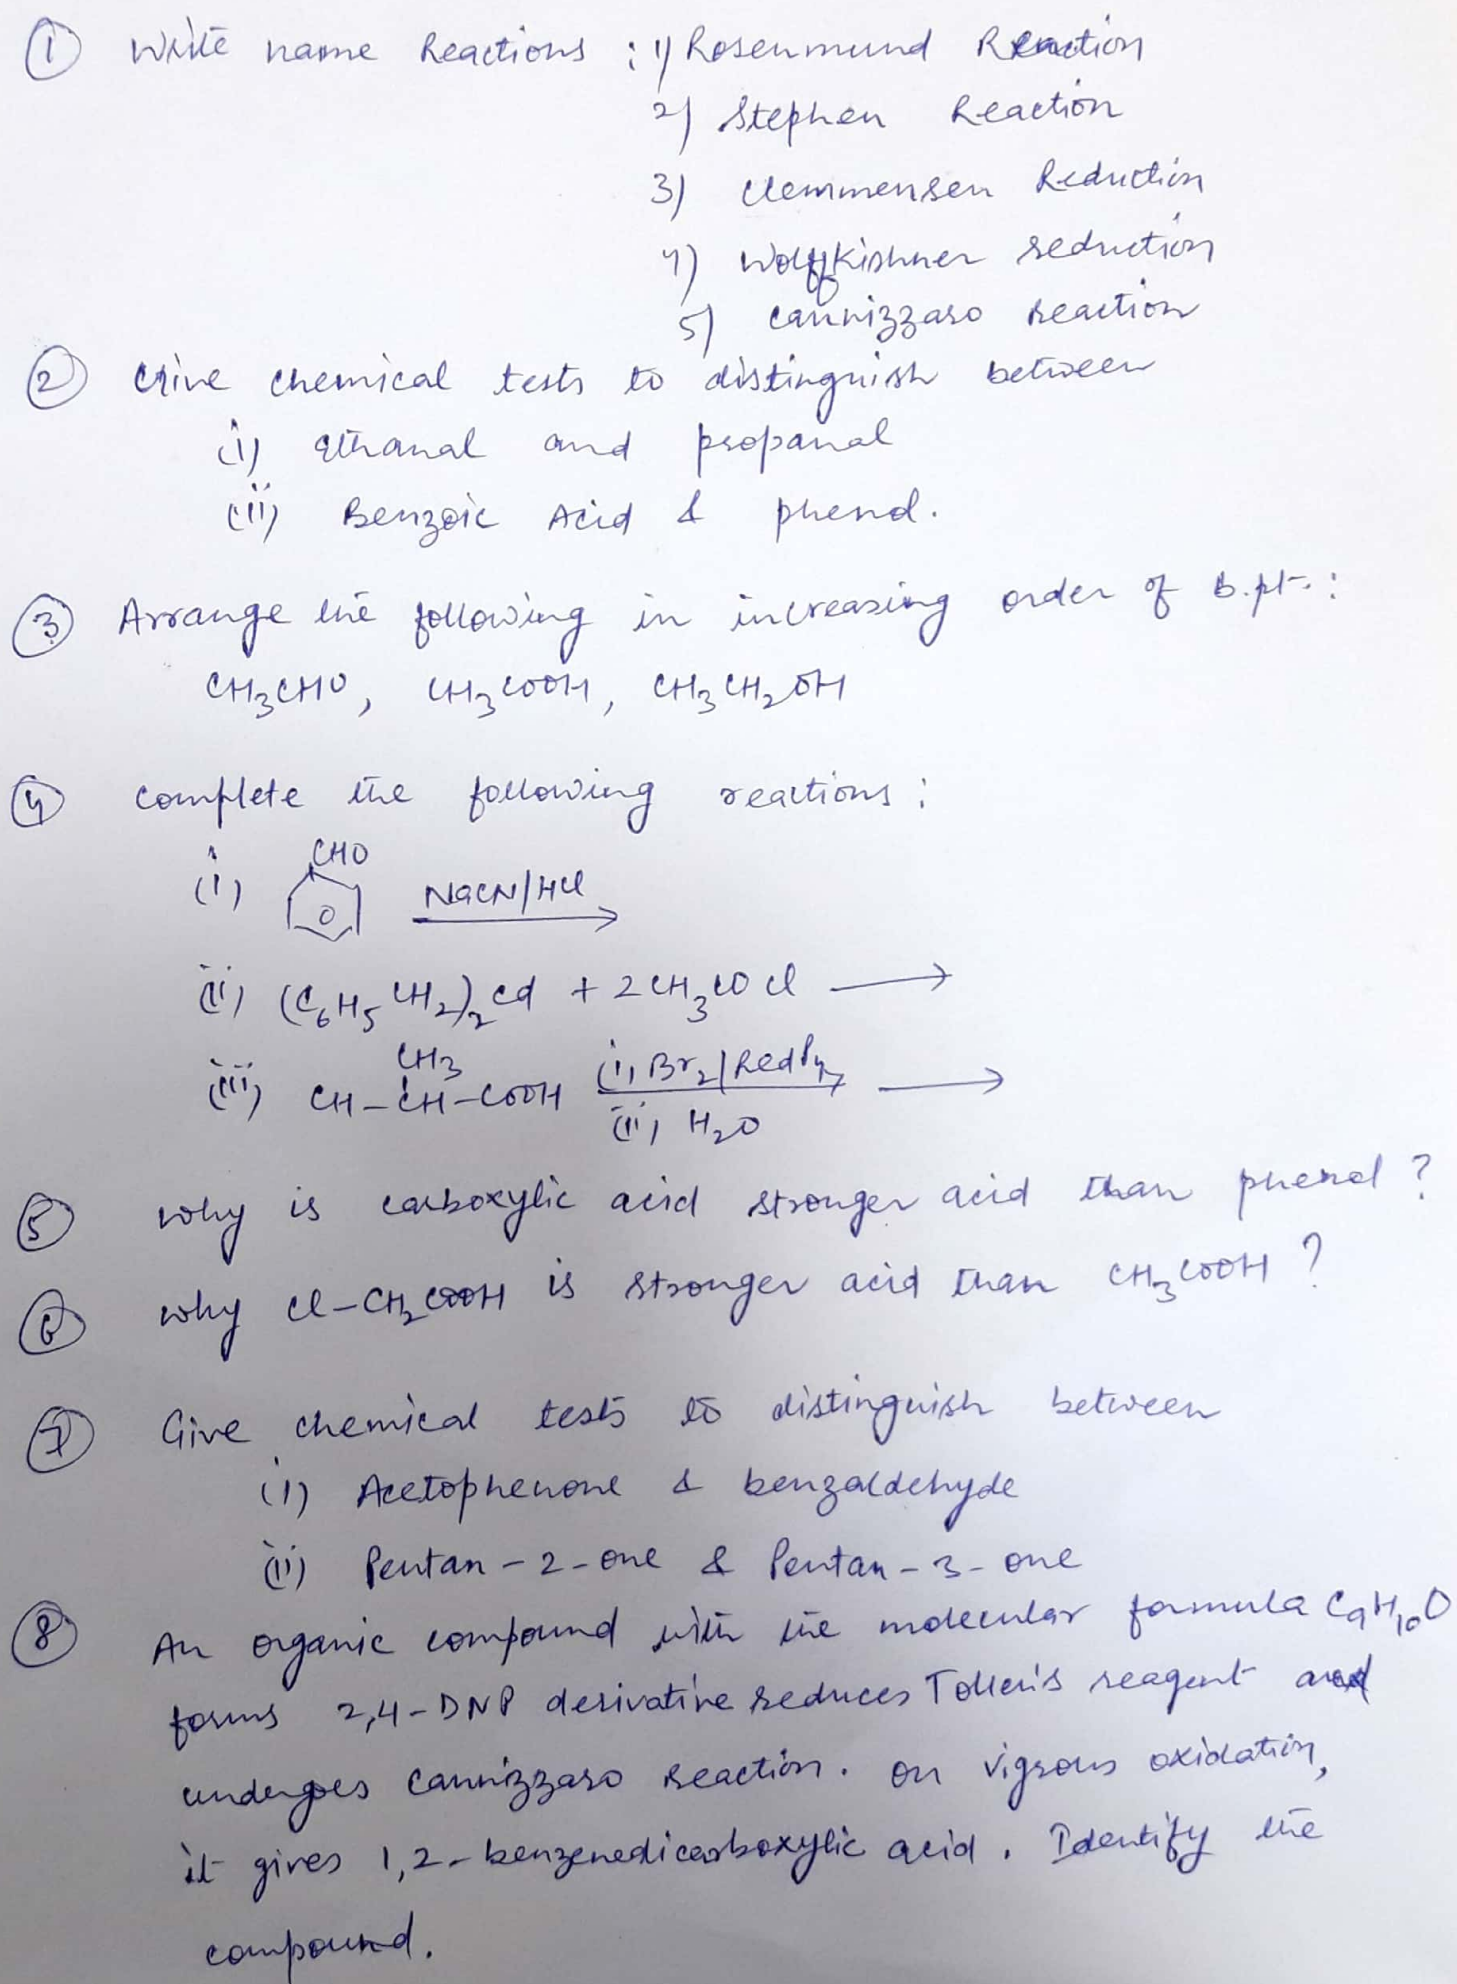 ① Write name Reactions : 1) Rosenmund Reaction
2) Stephen Reaction
3) Clemmensen Reduction
4) Wolffkishner reduction
5) Cannizzaro reaction
② Give chemical tests to distinguish between
(i) Ethanal and propanal
(ii) Benzoic Acid & phenol.
③ Arrange the following in increasing order of b.pt. :
CH₃CHO, CH₃COOH, CH₃CH₂OH
④ complete the following reactions :
(i) CHO NaCN/HCl
(ii) (C₆H₅CH₂)₂Cd + 2CH₃COCl ⟶
CH₃
(iii) CH-CH-COOH (i) Br₂/Red P₄ ⟶
(ii) H₂O
⑤ why is carboxylic acid stronger acid than phenol ?
⑥ why Cl-CH₂COOH is stronger acid than CH₃COOH ?
⑦ Give chemical tests to distinguish between
(i) Acetophenone & benzaldehyde
(ii) Pentan-2-one & Pentan-3-one
⑧ An organic compound with the molecular formula C₉H₁₀O
forms 2,4-DNP derivative reduces Tollen's reagent and
undergoes Cannizzaro reaction. on vigrous oxidation,
it gives 1,2-benzenedicarboxylic acid. Identify the
compound.